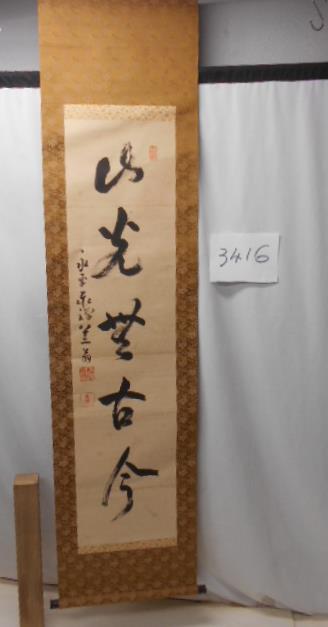 山光無古今
永平
3416